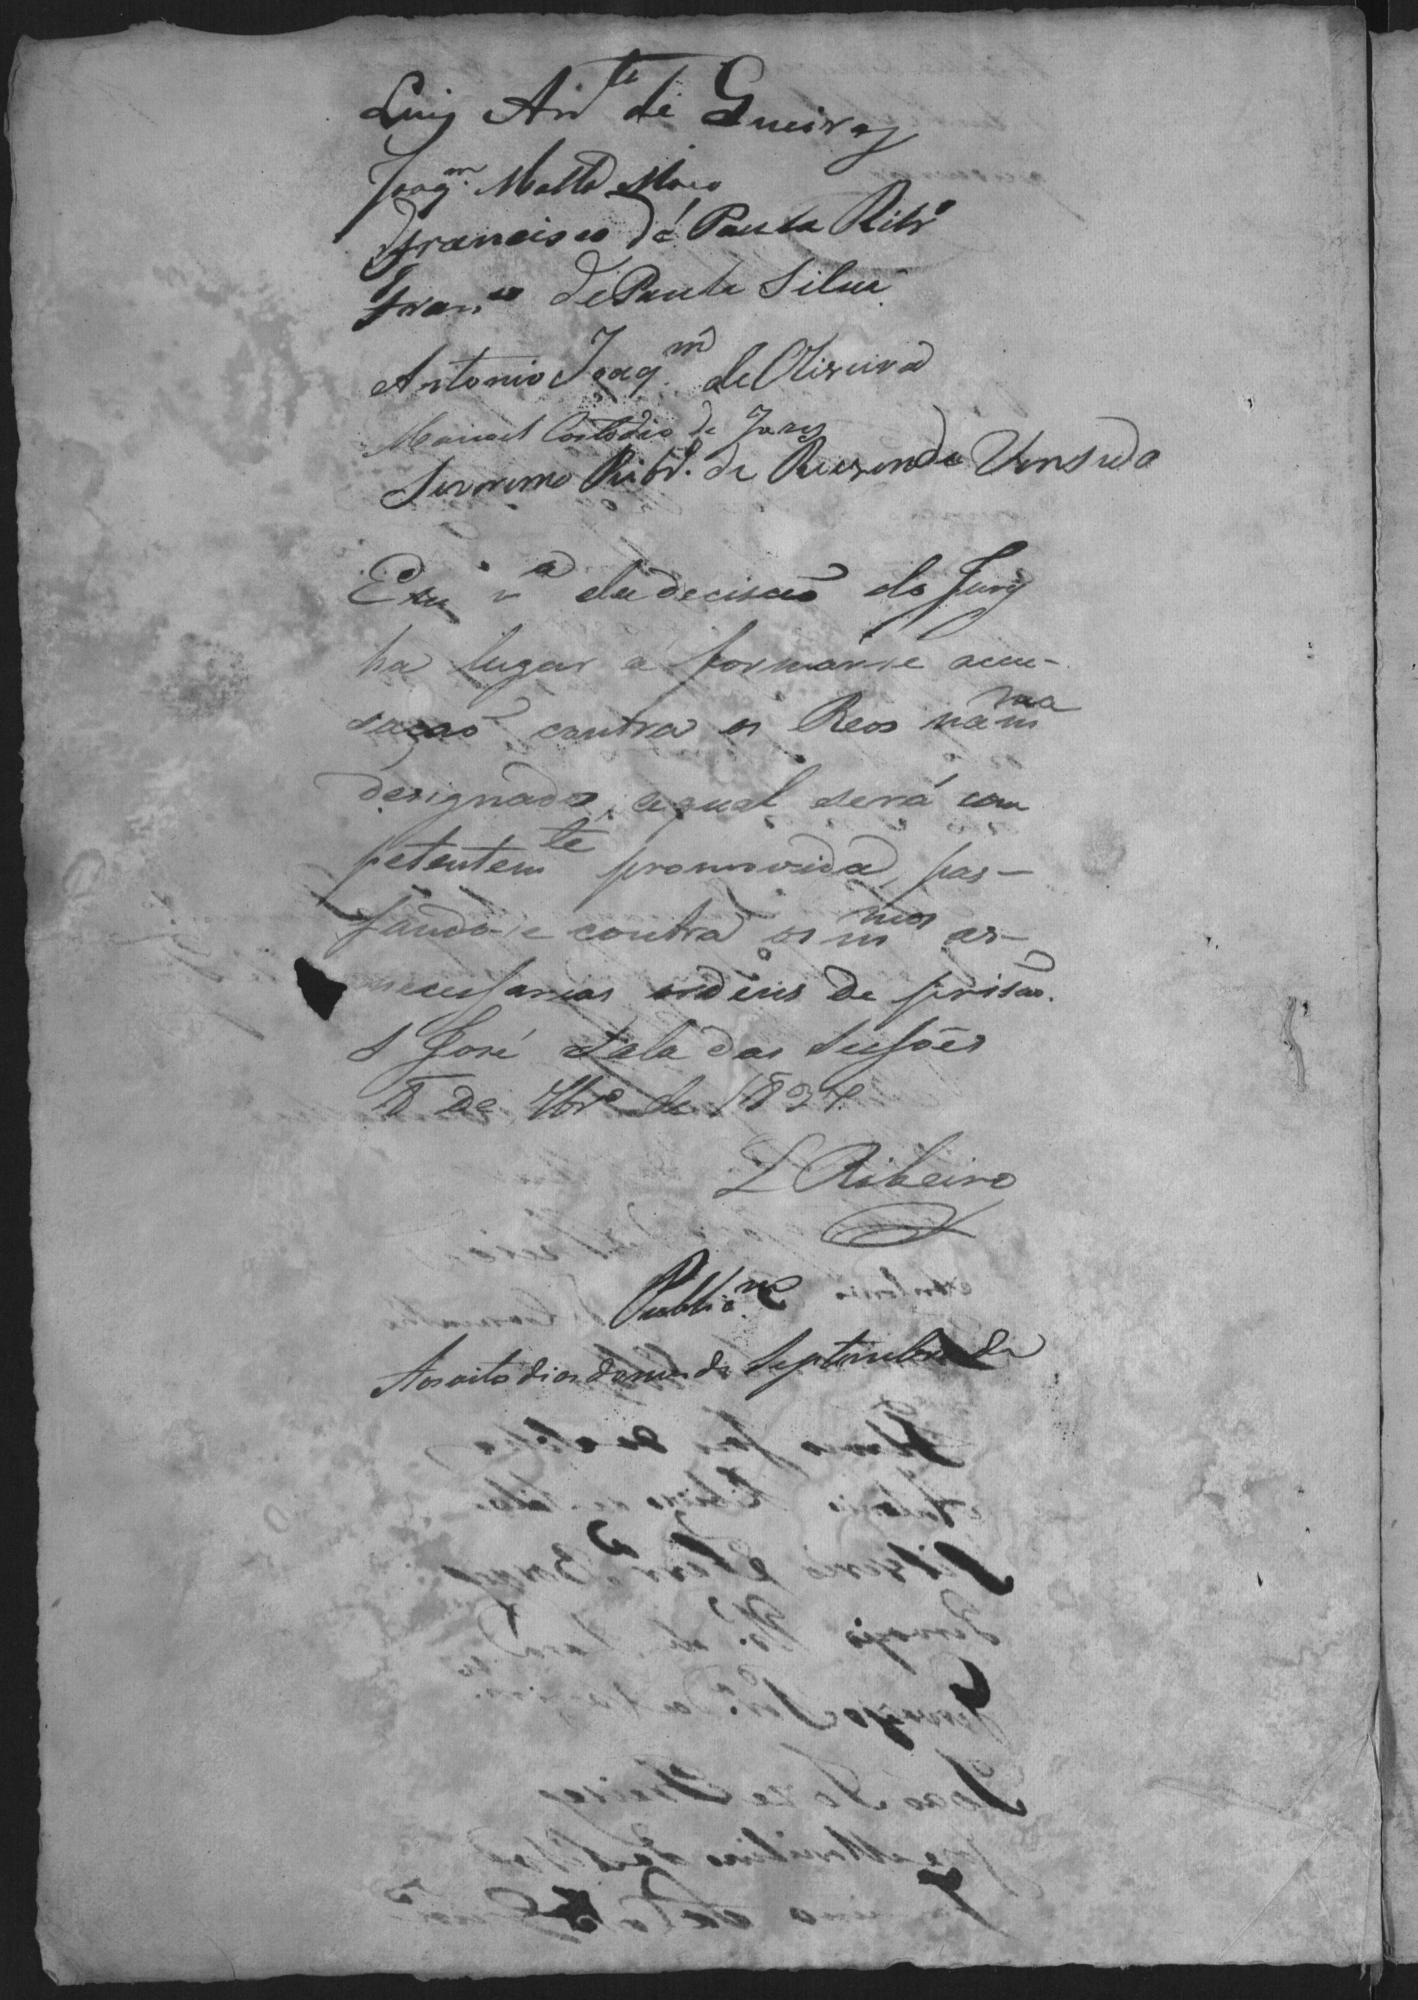 Luiz Ant.te de Queiroz
Joaq.m Mattos
Francisco de Paula Rib.o
Fran.co de Paula Silva
Antonio Joaq.m de Oliveira
Manoel Custodio de
Jeronimo Rib.o de Rezende Vensedo
Em v.a da decisaõ do Jury
ha lugar a formarse accu-
saçaõ contra os Reos na m.ma
designados, a qual será com
petentem.te promovida, pas-
sando-se contra os m.mos as
necessarias ordens de prisaõ.
S José Sala das Sessões
8 de 7br.o de 1837.
L Ribeiro
Public.m
Aos oito dias do mes de Septembro de